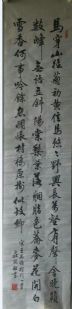 馬穿山徑菊初黃信馬悠悠野興長萬壑有聲含晚籟
數峰無語立斜陽棠梨葉落胭脂色蕎麥花開白
雪香何事吟餘忽惆悵村橋原樹似故鄉
宋王禹偁村行